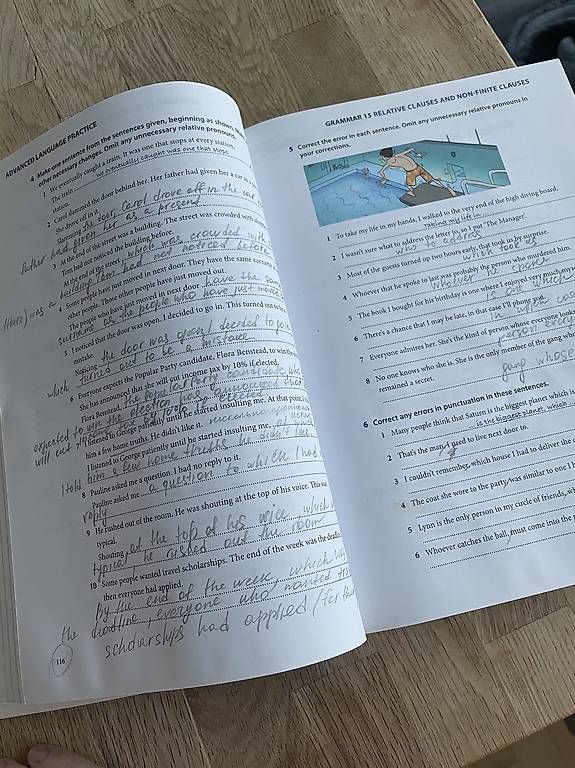 ADVANCED LANGUAGE PRACTICE
4 Make one sentence from the sentences given, beginning as shown.
other necessary changes. Omit any unnecessary relative pronouns.
We eventually caught a train. It was one that stops at every station.
The train we eventually caught was one that stops
station.
2 Carol slammed the door behind her. Her father had given her a car as a
She drove off in it.
Slamming the door, Carol drove off in the car
father had given her as a present
3 At the end of the street was a building. The street was crowded with
Tom had not noticed the building before.
At the end of the street, which was crowded with
(there) was a building Tom had not noticed before
4 Some people have just moved in next door. They have the same surname
other people. Those other people have just moved out.
The people who have just moved in next door have the same
surname as the people who have just moved
5 I noticed that the door was open. I decided to go in. This turned out to be a
mistake.
Noticing the door was open I decided to go in
which turned out to be a mistake
6 Everyone expects the Popular Party candidate, Flora Benstead, to win the
She has announced that she will cut income tax by 10% if elected.
Flora Benstead, the Popular Party candidate who
expected to win the election has announced that
will cut income tax by 10% if elected
7 I listened to George patiently until he started insulting me. At that point, I
him a few home truths. He didn't like it.
I listened to George patiently until he started insulting me, at which
I told him a few home truths he didn't like
8 Pauline asked me a question. I had no reply to it.
Pauline asked me a question to which I had
reply
9 He rushed out of the room. He was shouting at the top of his voice. This was
typical.
Shouting at the top of his voice, which
typical, he rushed out the room
10 Some people wanted travel scholarships. The end of the week was the deadline
then everyone had applied.
By the end of the week, which was
the deadline, everyone who wanted
scholarships had applied (for
116
GRAMMAR 15 RELATIVE CLAUSES AND NON-FINITE CLAUSES
5 Correct the error in each sentence. Omit any unnecessary relative pronouns in
your corrections.
1 To take my life in my hands, I walked to the very end of the high diving board.
Taking my life in
2 I wasn't sure what to address the letter to, so I put 'The Manager'.
who to address
3 Most of the guests turned up two hours early, that took us by surprise.
which took us
4 Whoever that he spoke to last was probably the person who murdered him.
Whoever he spoke
5 The book I bought for his birthday is one where I enjoyed very much
is one which
6 There's a chance that I may be late, in that case I'll phone
in which case
7 Everyone admires her. She's the kind of person whose everyone looks
person every
8 No one knows who she is. She is the only member of the gang who
remained a secret.
gang whose
6 Correct any errors in punctuation in these sentences.
1 Many people think that Saturn is the biggest planet which is
is the biggest planet, which
2 That's the man, I used to live next door to.
3 I couldn't remember, which house I had to deliver the
4 The coat she wore to the party, was similar to one I
5 Lynn is the only person in my circle of friends, who
6 Whoever catches the ball, must come into the